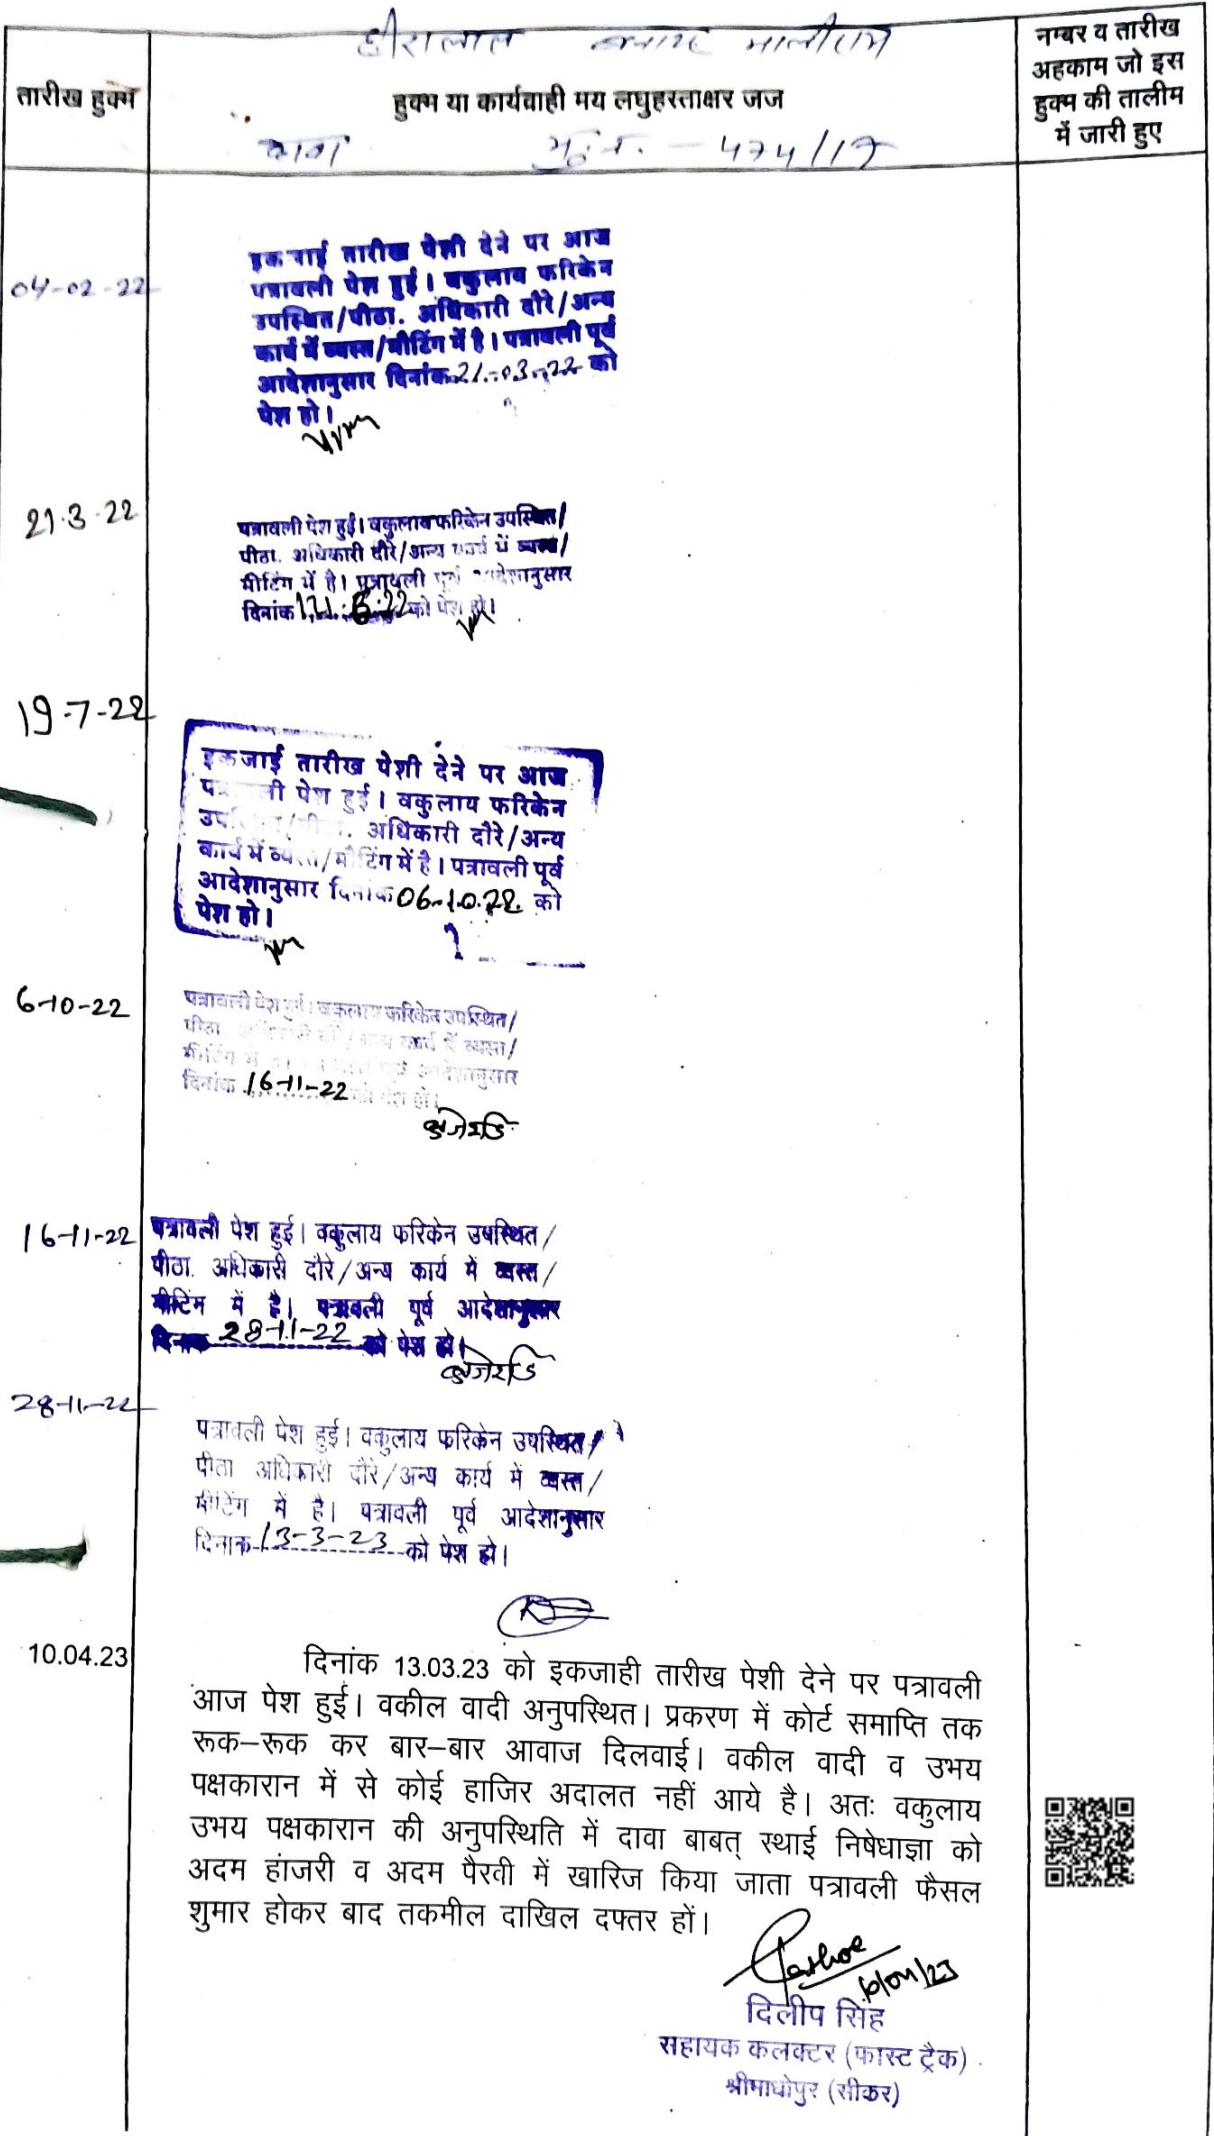 हीरालाल बनाम मालीराम
तारीख हुक्म
हुक्म या कार्यवाही मय लघुहस्ताक्षर जज
नम्बर व तारीख
अहकाम जो इस
हुक्म की तालीम
में जारी हुए
मु.न. - 474/17
04-02-22
इकजाई तारीख पेशी देने पर आज
पत्रावली पेश हुई। वकुलाय फरिकेन
उपस्थित/पीठा. अधिकारी दौरे/अन्य
कार्य में व्यस्त/मीटिंग में है। पत्रावली पूर्व
आदेशानुसार दिनांक 21-03-22 को
पेश हो।
21.3.22
पत्रावली पेश हुई। वकुलाय फरिकेन उपस्थित/
पीठा. अधिकारी दौरे/अन्य कार्य में व्यस्त/
मीटिंग में है। पत्रावली पूर्व आदेशानुसार
दिनांक को पेश हो।
19-7-22
इकजाई तारीख पेशी देने पर आज
पत्रावली पेश हुई। वकुलाय फरिकेन
उपस्थित/पीठा. अधिकारी दौरे/अन्य
कार्य में व्यस्त/मीटिंग में है। पत्रावली पूर्व
आदेशानुसार दिनांक 06-10.22. को
पेश हो।
6-10-22
पत्रावली पेश हुई। वकुलाय फरिकेन उपस्थित/
पीठा. अधिकारी दौरे/अन्य कार्य में व्यस्त/
मीटिंग में है। पत्रावली पूर्व आदेशानुसार
दिनांक 16-11-22 को पेश हो।
16-11-22
पत्रावली पेश हुई। वकुलाय फरिकेन उपस्थित/
पीठा. अधिकारी दौरे/अन्य कार्य में व्यस्त/
मीटिंग में है। पत्रावली पूर्व आदेशानुसार
दिनांक 28-11-22 को पेश हो।
28-11-22
पत्रावली पेश हुई। वकुलाय फरिकेन उपस्थित/
पीठा अधिकारी दौरे/अन्य कार्य में व्यस्त/
मीटिंग में है। पत्रावली पूर्व आदेशानुसार
दिनांक 13-3-23 को पेश हो।
10.04.23
दिनांक 13.03.23 को इकजाही तारीख पेशी देने पर पत्रावली
आज पेश हुई। वकील वादी अनुपस्थित। प्रकरण में कोर्ट समाप्ति तक
रूक–रूक कर बार–बार आवाज दिलवाई। वकील वादी व उभय
पक्षकारान में से कोई हाजिर अदालत नहीं आये है। अतः वकुलाय
उभय पक्षकारान की अनुपस्थिति में दावा बाबत् स्थाई निषेधाज्ञा को
अदम हांजरी व अदम पैरवी में खारिज किया जाता पत्रावली फैसल
शुमार होकर बाद तकमील दाखिल दफ्तर हों।
दिलीप सिंह
सहायक कलक्टर (फास्ट ट्रैक)
श्रीमाधोपुर (सीकर)